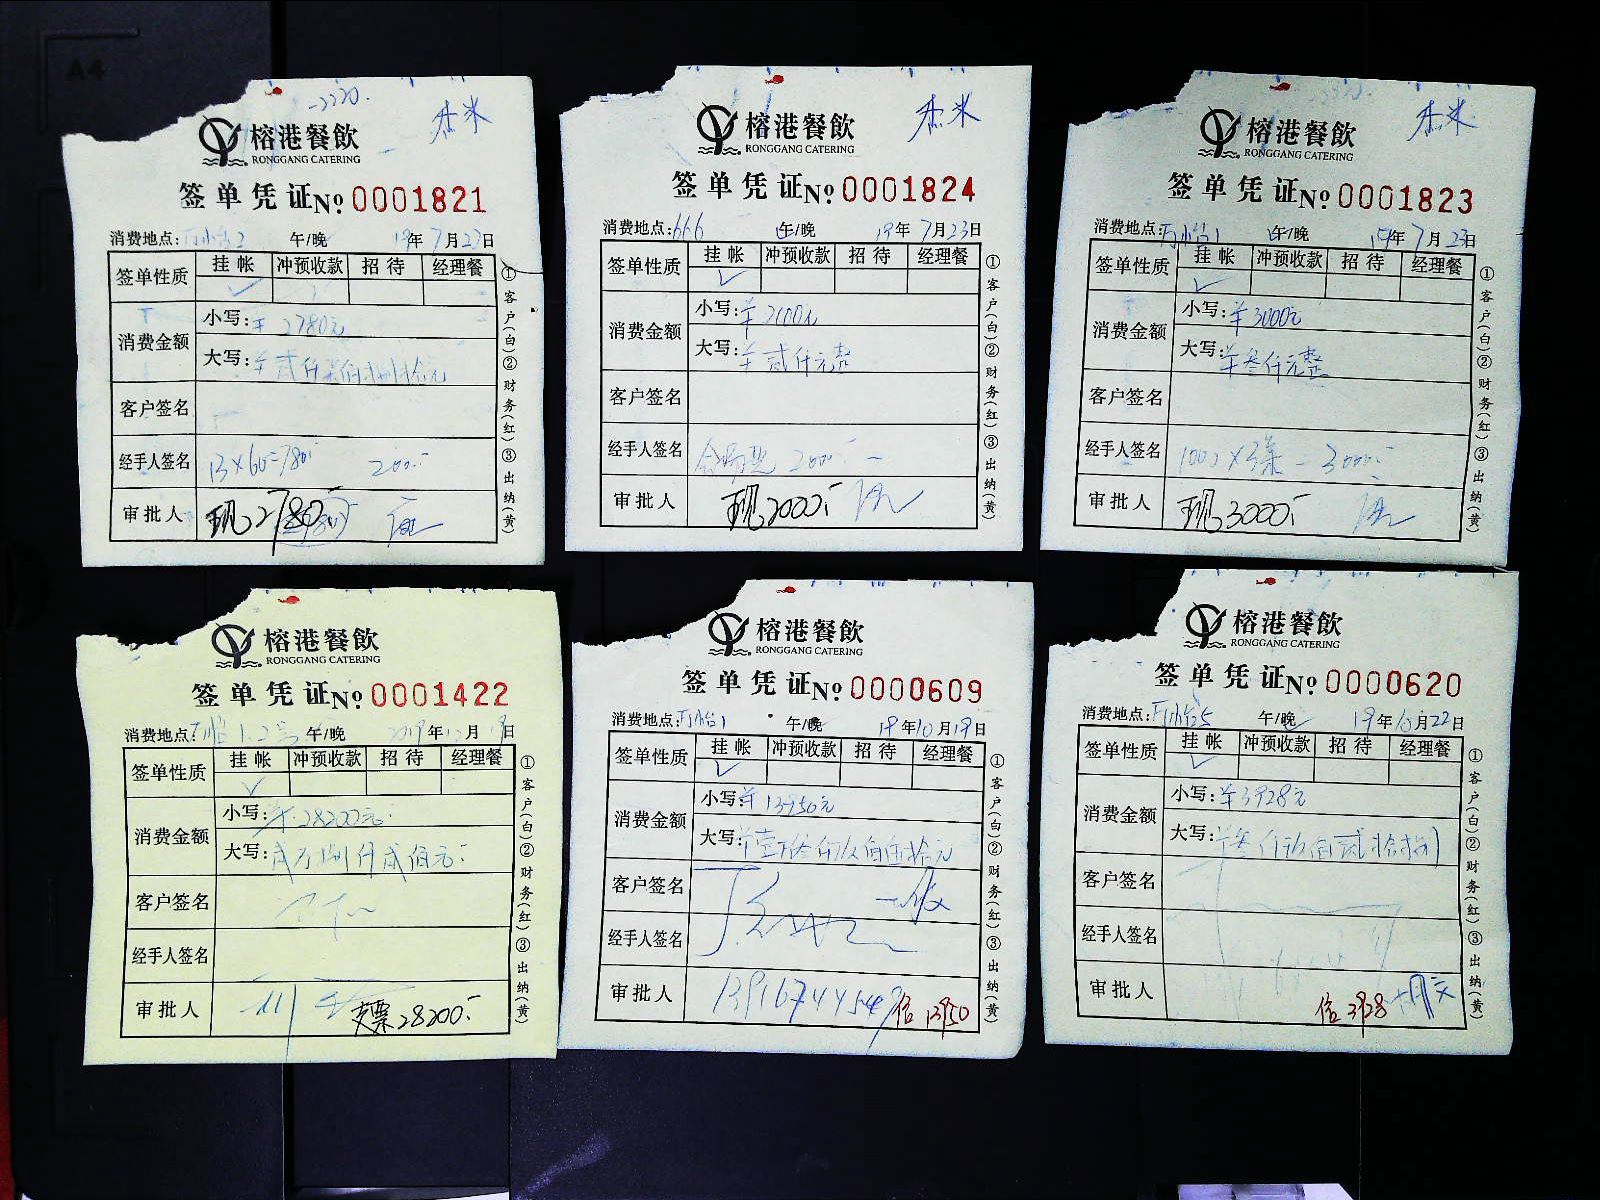 A4
-2220.
杰米
榕港餐飲
RONGGANG CATERING
签单凭证No. 0001821
消费地点: 午/晚 19年7月23日
签单性质 挂帐 冲预收款 招待 经理餐
✓
消费金额
小写: ¥2780元
大写: ¥贰仟柒佰捌拾元
客户签名
经手人签名 13×60=780 2000.-
审批人 现2780.-
①客户(白)②财务(红)③出纳(黄)
杰米
榕港餐飲
RONGGANG CATERING
签单凭证No. 0001824
消费地点: 666 午/晚 19年7月23日
签单性质 挂帐 冲预收款 招待 经理餐
✓
消费金额
小写: ¥2000元
大写: ¥贰仟元整
客户签名
经手人签名 会场费 2000.-
审批人 现2000.-
①客户(白)②财务(红)③出纳(黄)
杰米
榕港餐飲
RONGGANG CATERING
签单凭证No. 0001823
消费地点: 午/晚 19年7月23日
签单性质 挂帐 冲预收款 招待 经理餐
✓
消费金额
小写: ¥3000元
大写: ¥叁仟元整
客户签名
经手人签名 1000×3 = 3000.-
审批人 现3000.-
①客户(白)②财务(红)③出纳(黄)
榕港餐飲
RONGGANG CATERING
签单凭证No. 0001422
消费地点: 1.2号 午/晚 2019年12月19日
签单性质 挂帐 冲预收款 招待 经理餐
✓
消费金额
小写: ¥28200元.
大写: 贰万捌仟贰佰元.
客户签名
经手人签名
审批人 支票28200.-
①客户(白)②财务(红)③出纳(黄)
榕港餐飲
RONGGANG CATERING
签单凭证No. 0000609
消费地点: 午/晚 19年10月19日
签单性质 挂帐 冲预收款 招待 经理餐
✓
消费金额
小写: ¥13950元
大写: ¥壹万叁仟玖佰伍拾元
客户签名
经手人签名
审批人 信 13950
①客户(白)②财务(红)③出纳(黄)
榕港餐飲
RONGGANG CATERING
签单凭证No. 0000620
消费地点: 午/晚 19年10月22日
签单性质 挂帐 冲预收款 招待 经理餐
✓
消费金额
小写: ¥3928元
大写: ¥叁仟玖佰贰拾捌
客户签名
经手人签名
审批人 信3928
①客户(白)②财务(红)③出纳(黄)